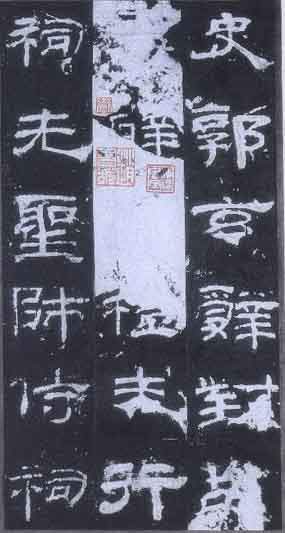 史郭玄辭對故
礼未行
祠先聖師侍祠